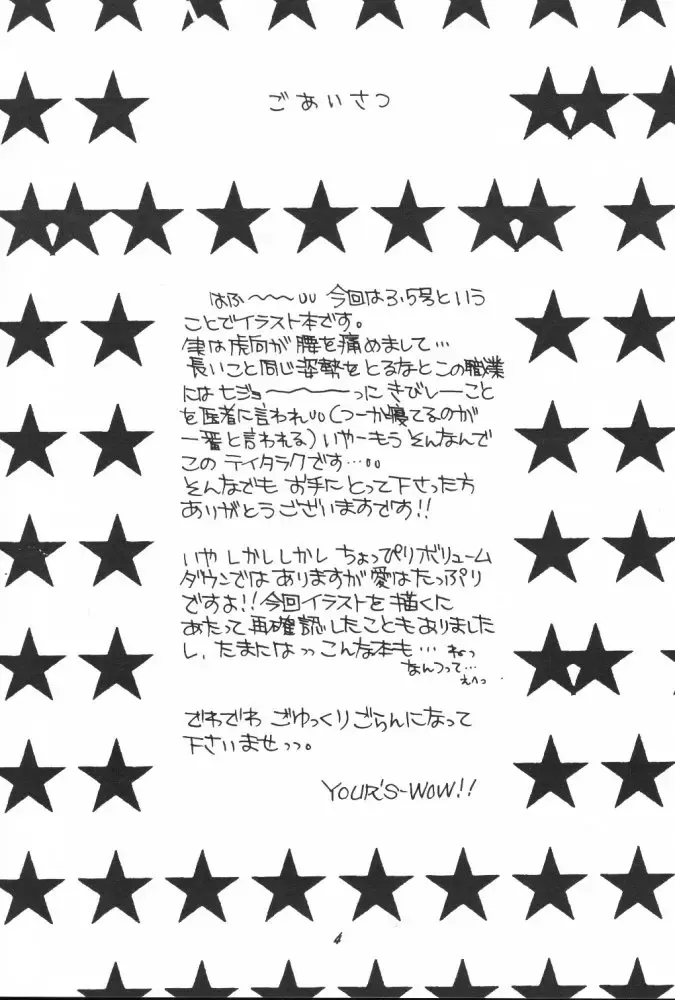 ごあいさつ
はふ〜〜〜〜υυ 今回は3.5号という
ことでイラスト本です。
実は虎向が腰を痛めまして…
長いこと同じ姿勢をとるなとこの職業
には七ジョ〜〜〜〜っにきびしーこと
を医者に言われυυ(つーか寝てるのが
一番と言われる)いやーもうそんなんで
このテイタラクです…υυ
そんなでも お手にとって下さった方
ありがとうございますです!!
いやしかししかし ちょっぴりボリューム
ダウンではありますが愛はたっぷり
ですよ!!今回イラストを描くに
あたって再確認したこともありました
し、たまにはっっこんな本も… ねっ
なんつって…
えへっ
でわでわ ごゆっくりごらんになって
下さいませっっ。
YOUR'S-WOW!!
4